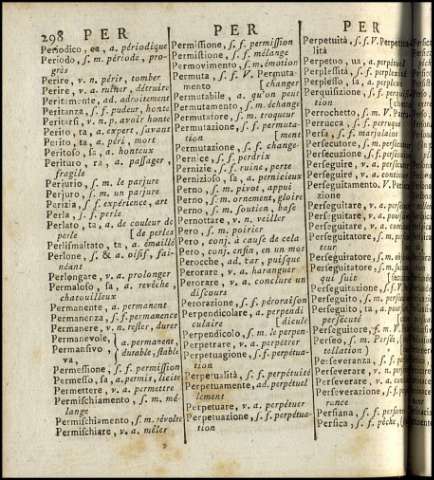 298 PER PER PER
Periodico, ea, a. périodique
Periodo, s. m. période, pro-
grès
Perire, v. n. périr, tomber
Perire, v. a. ruiner, détruire
Peritamente, ad. adroitement
Peritanza, s. f. pudeur, honte
Peritarsi, v. n. p. avoir honte
Perito, ta, a. expert, savant
Perito, ta, a. péri, mort
Peritoso, sa, a. honteux
Perituro, ra, a. passager,
fragile
Perjurio, s. m. le parjure
Perjuro, s. m. un parjure
Perizia, s. f. expérience, art
Perla, s. f. perle
Perlato, ta, a. de couleur de
perle [de perle
Perlismaltato, ta, a. émaillé
Perlone, s. & a. oisif, fai-
néant
Perlongare, v. a. prolonger
Permaloso, sa, a. revêche,
chatouilleux
Permanente, a. permanent
Permanenza, s. f. permanence
Permanere, v. n. rester, durer
Permanevole, a. permanent
Permansivo, durable, stable
va,
Permessione, s. f. permission
Permesso, sa, a. permis, licite
Permettere, v. a. permettre
Permischiamento, s. m. mé-
lange
Permischiamento, s. m. révolte
Permischiare, v. a. mêler
Permissione, s. f. permission
Permistione, s. f. mélange
Permovimento, s. m. émotion
Permuta, s. f. V. Permuta-
mento [changer
Permutabile, a. qu'on peut
Permutamento, s. m. échange
Permutatore, s. m. troqueur
Permutazione, s. f. permuta-
tion [ment
Permutazione, s. f. change-
Pernice, s. f. perdrix
Pernizie, s. f. ruine, perte
Pernizioso, sa, a. pernicieux
Perno, s. m. pivot, appui
Perno, s. m. ornement, gloire
Perno, s. m. soutien, base
Pernottare, v. n. veiller
Pero, s. m. poirier
Pero, conj. à cause de cela
Pero, conj. enfin, en un mot
Perocche, ad. car, puisque
Perorare, v. a. haranguer
Perorare, v. a. conclure un
discours
Perorazione, s. f. péroraison
Perpendicolare, a. perpendi
culaire [dicule
Perpendicolo, s. m. le perpen
Perpetrare, v. a. perpétrer
Perpetuagione, s. f. perpétua-
tion
Perpetualità, s. f. perpétuité
Perpetuamente, ad. perpétuel
lement
Perpetuare, v. a. perpétuer
Perpetuazione, s. f. perpétua-
tion
Perpetuità, s. f. V. Perpetua
lità
Perpetuo, ua, a. perpétuel
Perplessità, s. f. perplexité
Perplesso, sa, a. perplex
Perquisizione, s. f. perquisi
tion
Perrochetto, s. m. V.
Perruca, s. f. perruque
Persa, s. f. marjolaine
Persecutore, s. m. persécu
Persecuzione, s. f. persécu
Perseguire, v. a. contin
Perseguire, v. a. persécu
Perseguitamento, V. Persecu
zione
Perseguitare, v. a. persécu
Perseguitare, v. a. poursu
Perseguitare, v. a. contin
Perseguitatore, s. m. persécu
teur
Perseguitatore, s. m.
Perseguitatore, s. m.
qui suit
Perseguitazione, s. f. persécu
Perseguito, s. m. persécu
persécuté
Perseguitore, s. m. V. Per
Perseo, s. m. Persée
tellation)
Perseveranza, s. f. persévé
Perseverare, v. a. persévé
Perseverare, v. n. contin
Perseverazione, s. f. persévé
rance
Persiana, s. f. persienne
Persica, s. f. pêche